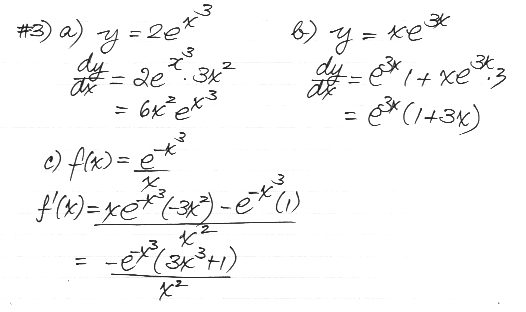 #3) a) y = 2e^{x^3}
dy/dx = 2e^{x^3} · 3x^2
= 6x^2 e^{x^3}
b) y = xe^{3x}
dy/dx = e^{3x} 1 + xe^{3x} · 3
= e^{3x} (1+3x)
c) f(x) = e^{-x^3} / x
f'(x) = xe^{-x^3}(-3x^2) - e^{-x^3}(1) / x^2
= -e^{-x^3}(3x^3+1) / x^2